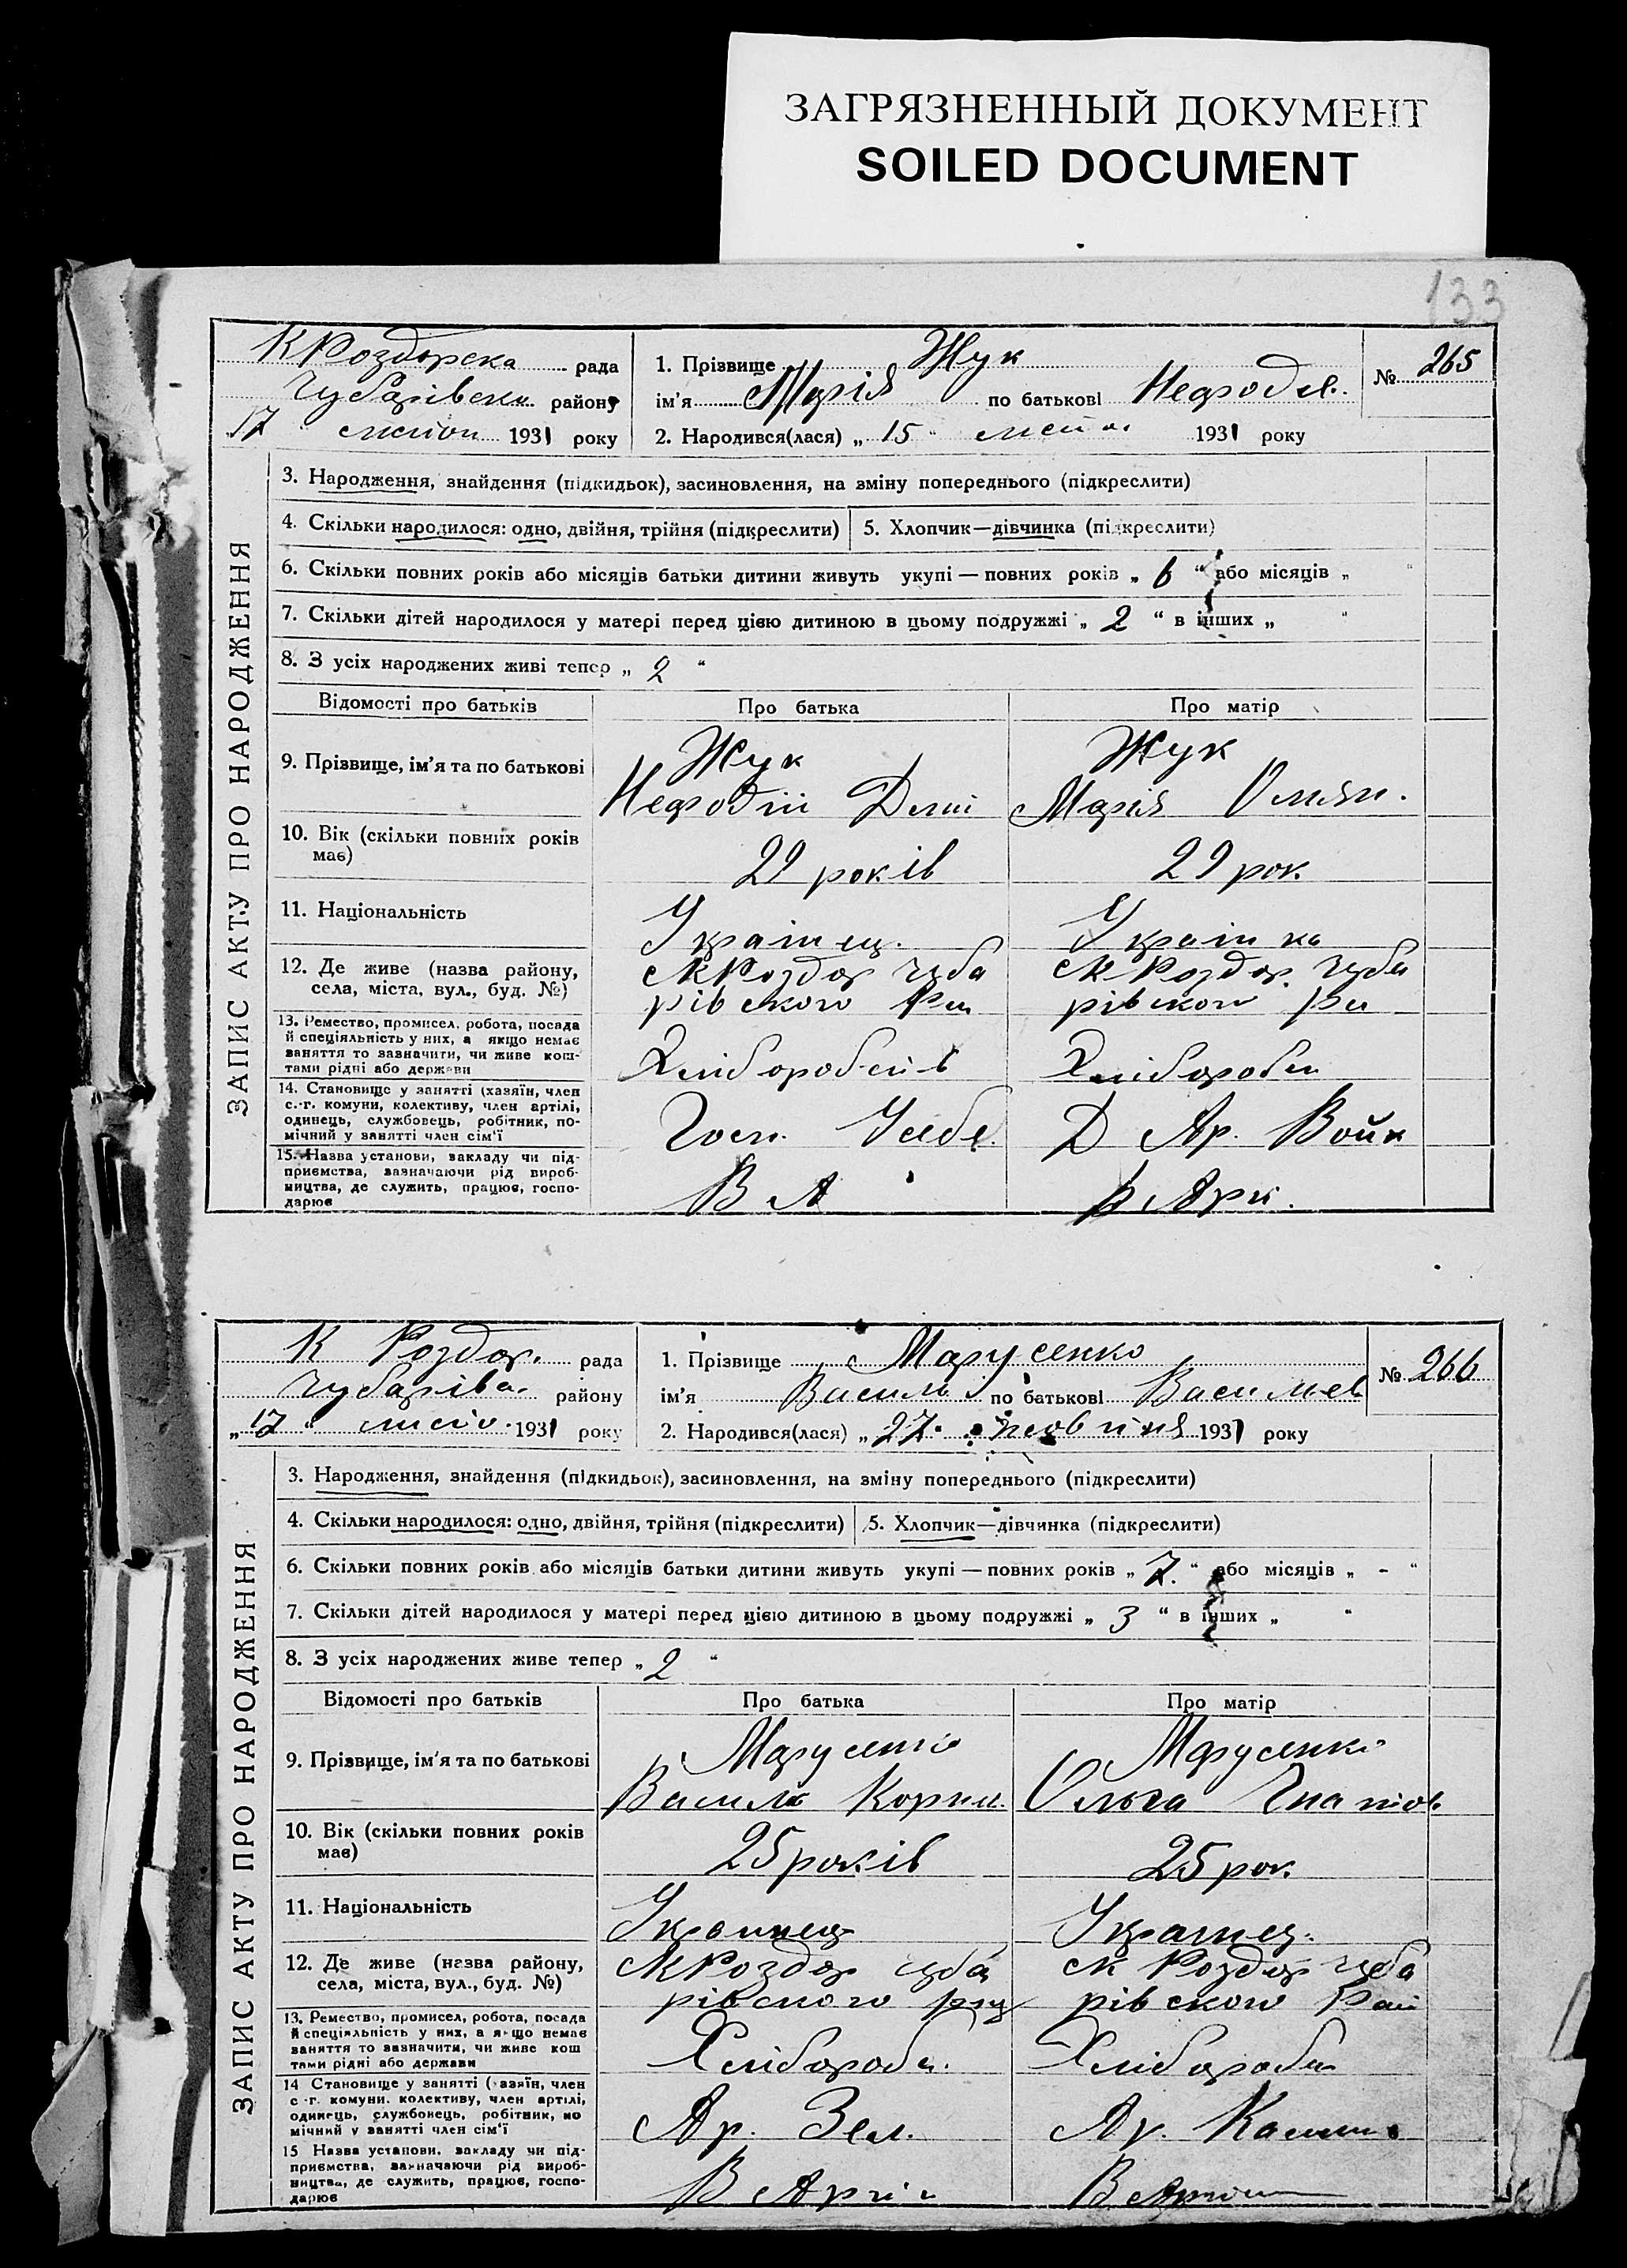 ЗАГРЯЗНЕННЫЙ ДОКУМЕНТ
SOILED DOCUMENT
133
К Роздорска рада
Чубарівськ району
17 листоп 1931 року
1. Прізвище Жук
ім'я Марія по батькові
2. Народився(лася) „ 15 “ 1931 року
№ 265
ЗАПИС АКТУ ПРО НАРОДЖЕННЯ
3. Народження, знайдення (підкидьок), засиновлення, на зміну попереднього (підкреслити)
4. Скільки народилося: одно, двійня, трійня (підкреслити)
5. Хлопчик—дівчинка (підкреслити)
6. Скільки повних років або місяців батьки дитини живуть укупі — повних років „ 6 “ або місяців „ “
7. Скільки дітей народилося у матері перед цією дитиною в цьому подружжі „ 2 “ в інших „ “
8. З усіх народжених живі тепер „ 2 “
Відомості про батьків
Про батька
Про матір
9. Прізвище, ім'я та по батькові
Жук
Жук
Марія
10. Вік (скільки повних років має)
29 років
29 рок.
11. Національність
Українец.
Українка
12. Де живе (назва району, села, міста, вул., буд. №)
с К Роздор Чуба
рівского Рай
с К Роздор. Чуба
рівского Ра
13. Ремество, промисел, робота, посада
й спеціяльність у них, а якщо немає
заняття то зазначити, чи живе кош-
тами рідні або держави
Хлібороб
14. Становище у занятті (хазяїн, член
с.-г. комуни, колективу, член артілі,
одинець, службовець, робітник, по-
мічний у занятті член сім'ї
Ар.
15. Назва установи, закладу чи під-
приємства, зазначаючи рід вироб-
ництва, де служить, працює, госпо-
дарює
В А
К Роздор. рада
Чубарівс. району
„ 17 “ листо. 1931 року
1. Прізвище Марусенко
ім'я Василь по батькові Васильев
2. Народився(лася) „ 27. жовтня 1931 року
№ 266
ЗАПИС АКТУ ПРО НАРОДЖЕННЯ
3. Народження, знайдення (підкидьок), засиновлення, на зміну попереднього (підкреслити)
4. Скільки народилося: одно, двійня, трійня (підкреслити)
5. Хлопчик—дівчинка (підкреслити)
6. Скільки повних років або місяців батьки дитини живуть укупі — повних років „ 7. “ або місяців „ - “
7. Скільки дітей народилося у матері перед цією дитиною в цьому подружжі „ 3 “ в інших „ “
8. З усіх народжених живе тепер „ 2 “
Відомості про батьків
Про батька
Про матір
9. Прізвище, ім'я та по батькові
Марусенко
Василь Корнил.
Марусенко
Ольга Гнатов.
10. Вік (скільки повних років має)
25 років
25 рок.
11. Національність
Українец
Українец.
12. Де живе (назва району, села, міста, вул., буд. №)
с К Роздор Чуба
рівского рай
с К Роздор Чуба
рівского Рай
13. Ремество, промисел, робота, посада
й спеціяльність у них, а якщо немає
заняття то зазначити, чи живе кош
тами рідні або держави
Хлібороб.
Хлібороб
14 Становище у занятті (хазяїн, член
с.-г. комуни. колективу, член артілі,
одинець, службовець, робітник, по
мічний у занятті член сім'ї
Ар. Зел.
Ар.
15 Назва установи, закладу чи під-
приємства, зазначаючи рід вироб-
ництва, де служить, працює, госпо-
дарює
В Артіл
В Артіл